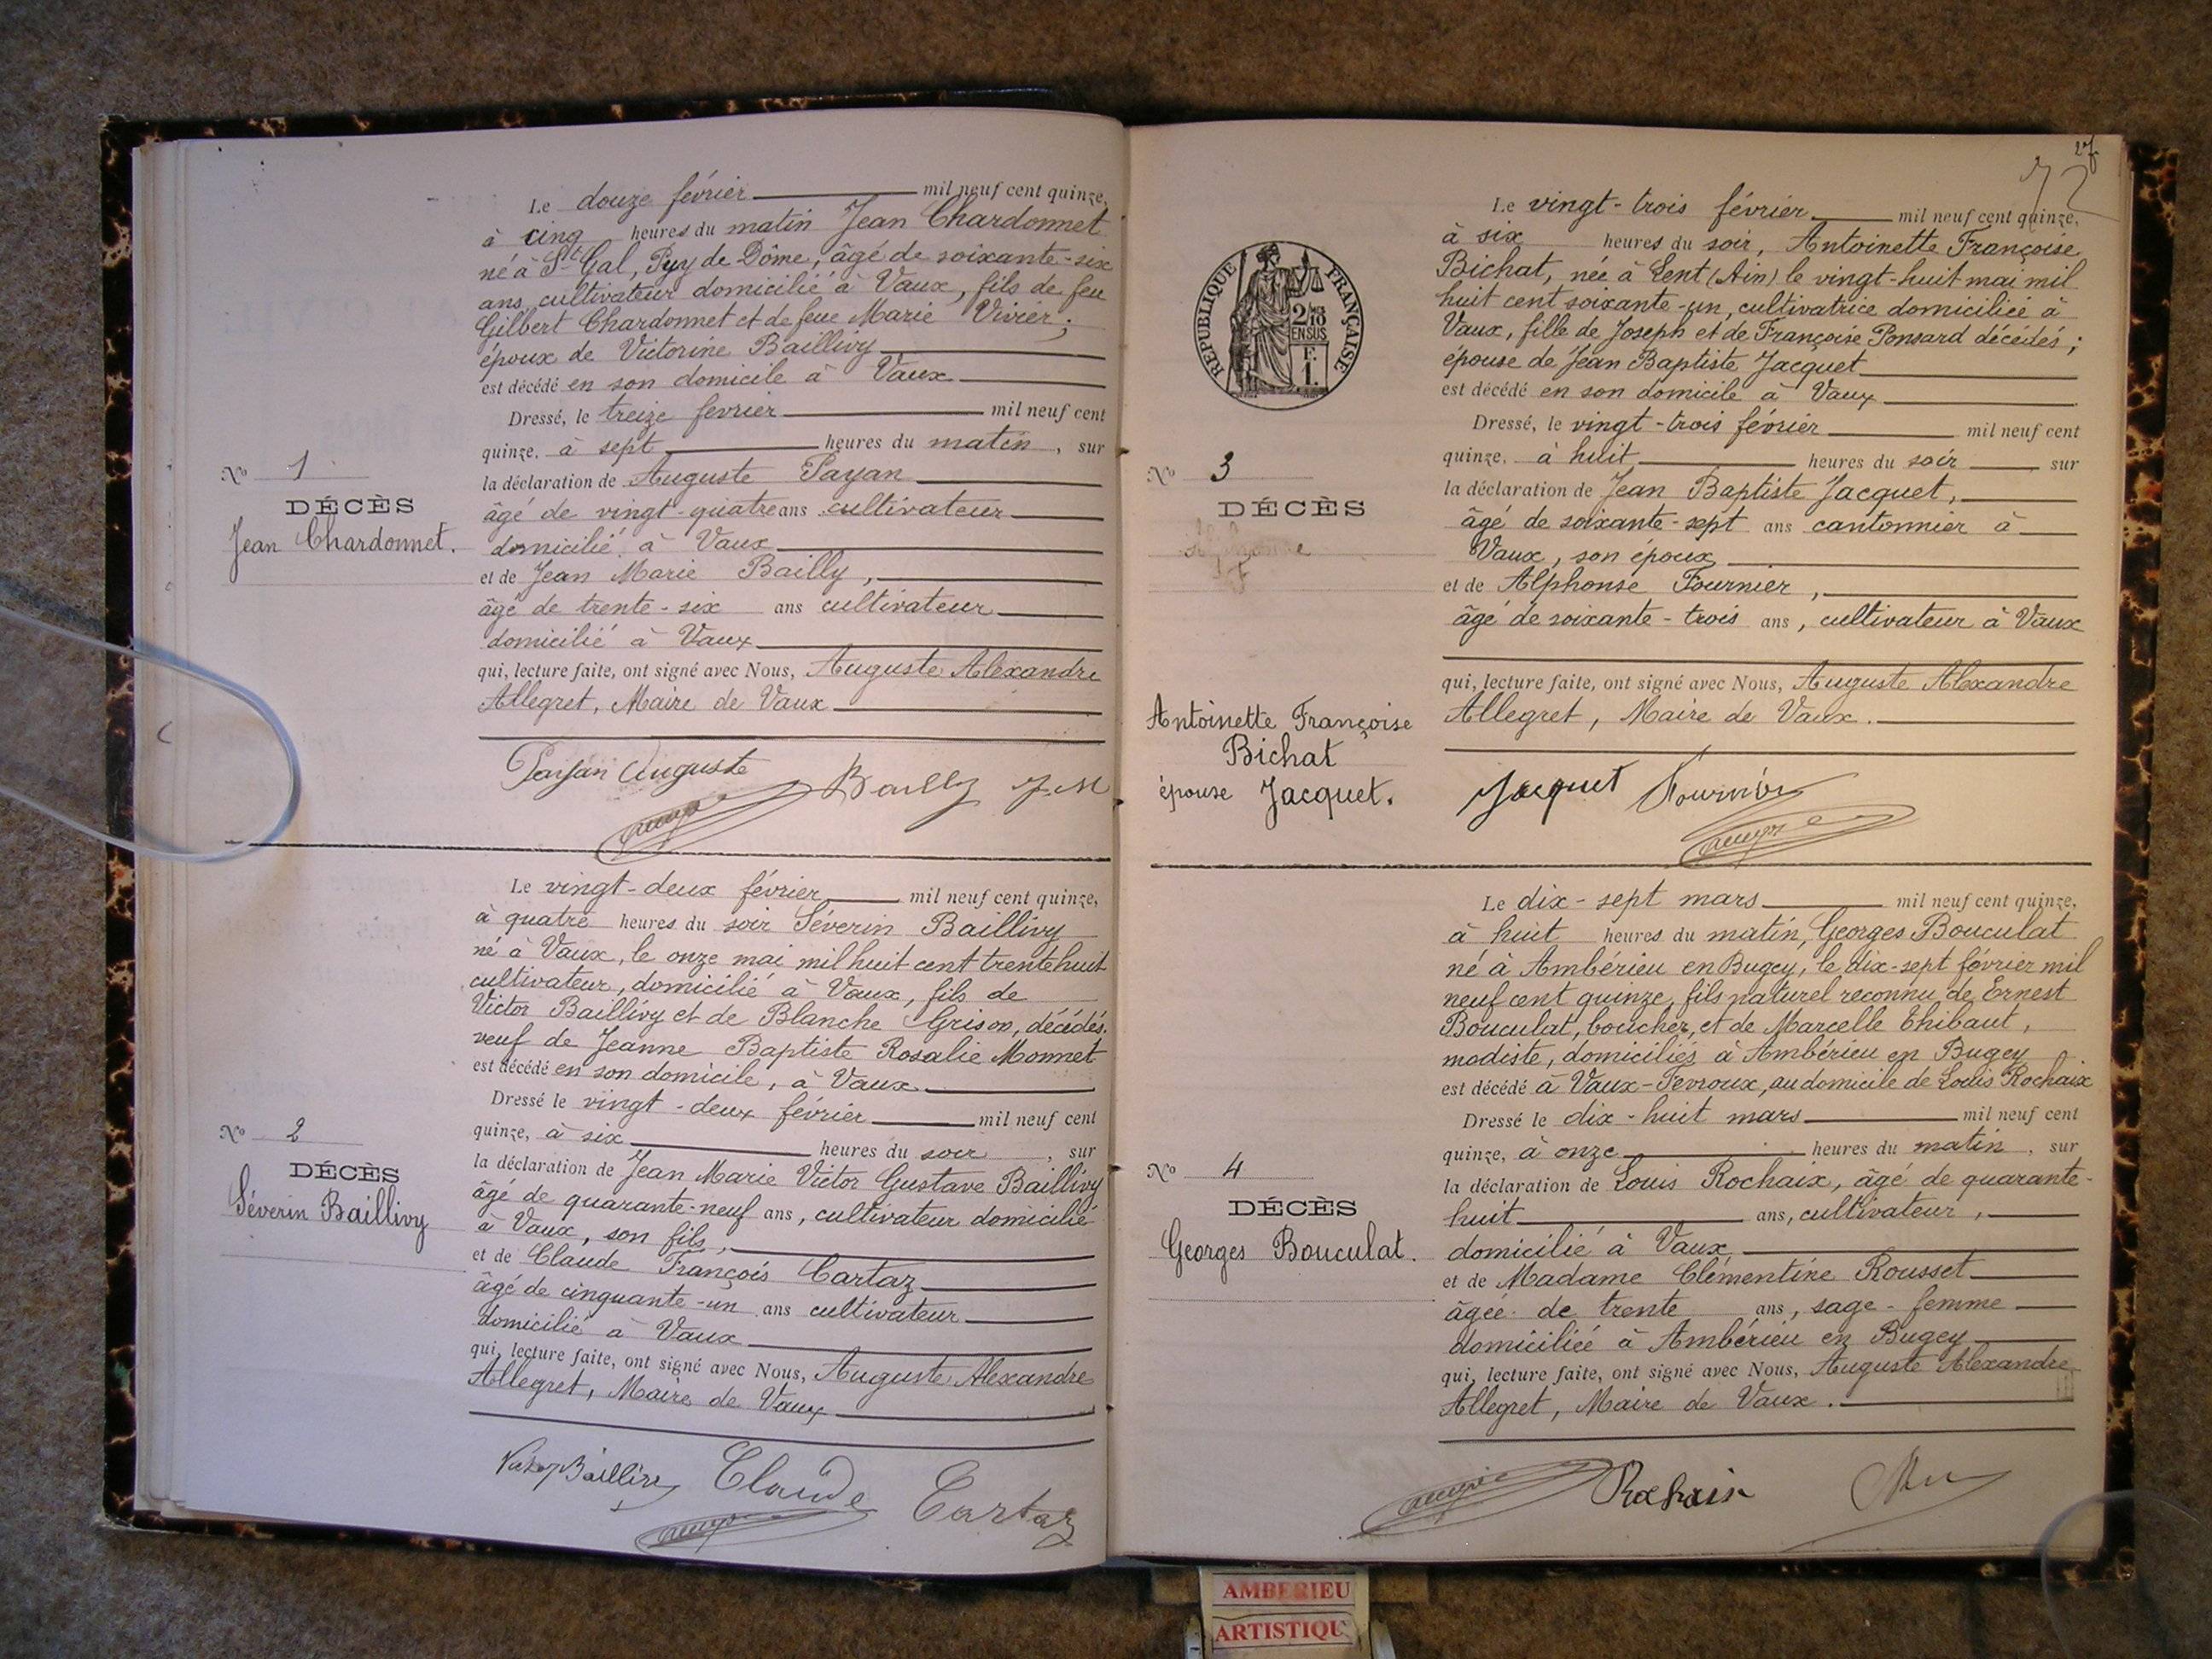 Le douze février mil neuf cent quinze,
à cinq heures du matin Jean Chardonnet
né à St Gal, Puy de Dôme, âgé de soixante-six
ans, cultivateur domicilié à Vaux, fils de feu
Gilbert Chardonnet et de feue Marie Vivier ;
époux de Victorine Baillivy
est décédé en son domicile à Vaux
Dressé, le treize fevrier mil neuf cent
quinze, à sept heures du matin, sur
la déclaration de Auguste Payan
âgé de vingt-quatre ans cultivateur
domicilié à Vaux
et de Jean Marie Bailly,
âgé de trente-six ans cultivateur
domicilié à Vaux
qui, lecture faite, ont signé avec Nous, Auguste Alexandre
Allegret, Maire de Vaux
No 1
DÉCÈS
Jean Chardonnet.
Payan Auguste
Bailly J. M
Le vingt-deux février mil neuf cent quinze,
à quatre heures du soir Séverin Baillivy
né à Vaux, le onze mai mil huit cent trente huit
cultivateur, domicilié à Vaux, fils de
Victor Baillivy et de Blanche Grison, décédés.
veuf de Jeanne Baptiste Rosalie Monnet
est décédé en son domicile, à Vaux
Dressé le vingt-deux février mil neuf cent
quinze, à six heures du soir, sur
la déclaration de Jean Marie Victor Gustave Baillivy
âgé de quarante-neuf ans, cultivateur domicilié
à Vaux, son fils,
et de Claude François Cartaz
âgé de cinquante-un ans cultivateur
domicilié à Vaux
qui, lecture faite, ont signé avec Nous, Auguste Alexandre
Allegret, Maire de Vaux
No 2
DÉCÈS
Séverin Baillivy
Claude Cartaz
27
72
RÉPUBLIQUE FRANÇAISE
2/10
EN SUS
F.
1.
Le vingt-trois février mil neuf cent quinze,
à six heures du soir, Antoinette Françoise
Bichat, née à Lent (Ain) le vingt-huit mai mil
huit cent soixante-un, cultivatrice domiciliée à
Vaux, fille de Joseph et de Françoise Ponsard décédés ;
épouse de Jean Baptiste Jacquet
est décédé en son domicile à Vaux
Dressé, le vingt-trois février mil neuf cent
quinze, à huit heures du soir sur
la déclaration de Jean Baptiste Jacquet,
âgé de soixante-sept ans cantonnier à
Vaux, son époux
et de Alphonse Fournier,
âgé de soixante-trois ans, cultivateur à Vaux
qui, lecture faite, ont signé avec Nous, Auguste Alexandre
Allegret, Maire de Vaux.
No 3
DÉCÈS
Antoinette Françoise
Bichat
épouse Jacquet.
Jacquet Fournier
Le dix-sept mars mil neuf cent quinze,
à huit heures du matin, Georges Bouculat
né à Ambérieu en Bugey, le dix-sept février mil
neuf cent quinze, fils naturel reconnu de Ernest
Bouculat, boucher, et de Marcelle Thibaut,
modiste, domiciliés à Ambérieu en Bugey
est décédé à Vaux-Fevroux, au domicile de Louis Rochaix
Dressé le dix-huit mars mil neuf cent
quinze, à onze heures du matin, sur
la déclaration de Louis Rochaix, âgé de quarante-
huit ans, cultivateur,
domicilié à Vaux
et de Madame Clémentine Rousset
âgée de trente ans, sage-femme
domiciliée à Ambérieu en Bugey
qui, lecture faite, ont signé avec Nous, Auguste Alexandre
Allegret, Maire de Vaux.
No 4
DÉCÈS
Georges Bouculat.
Rochaix
AMBERIEU
ARTISTIQU